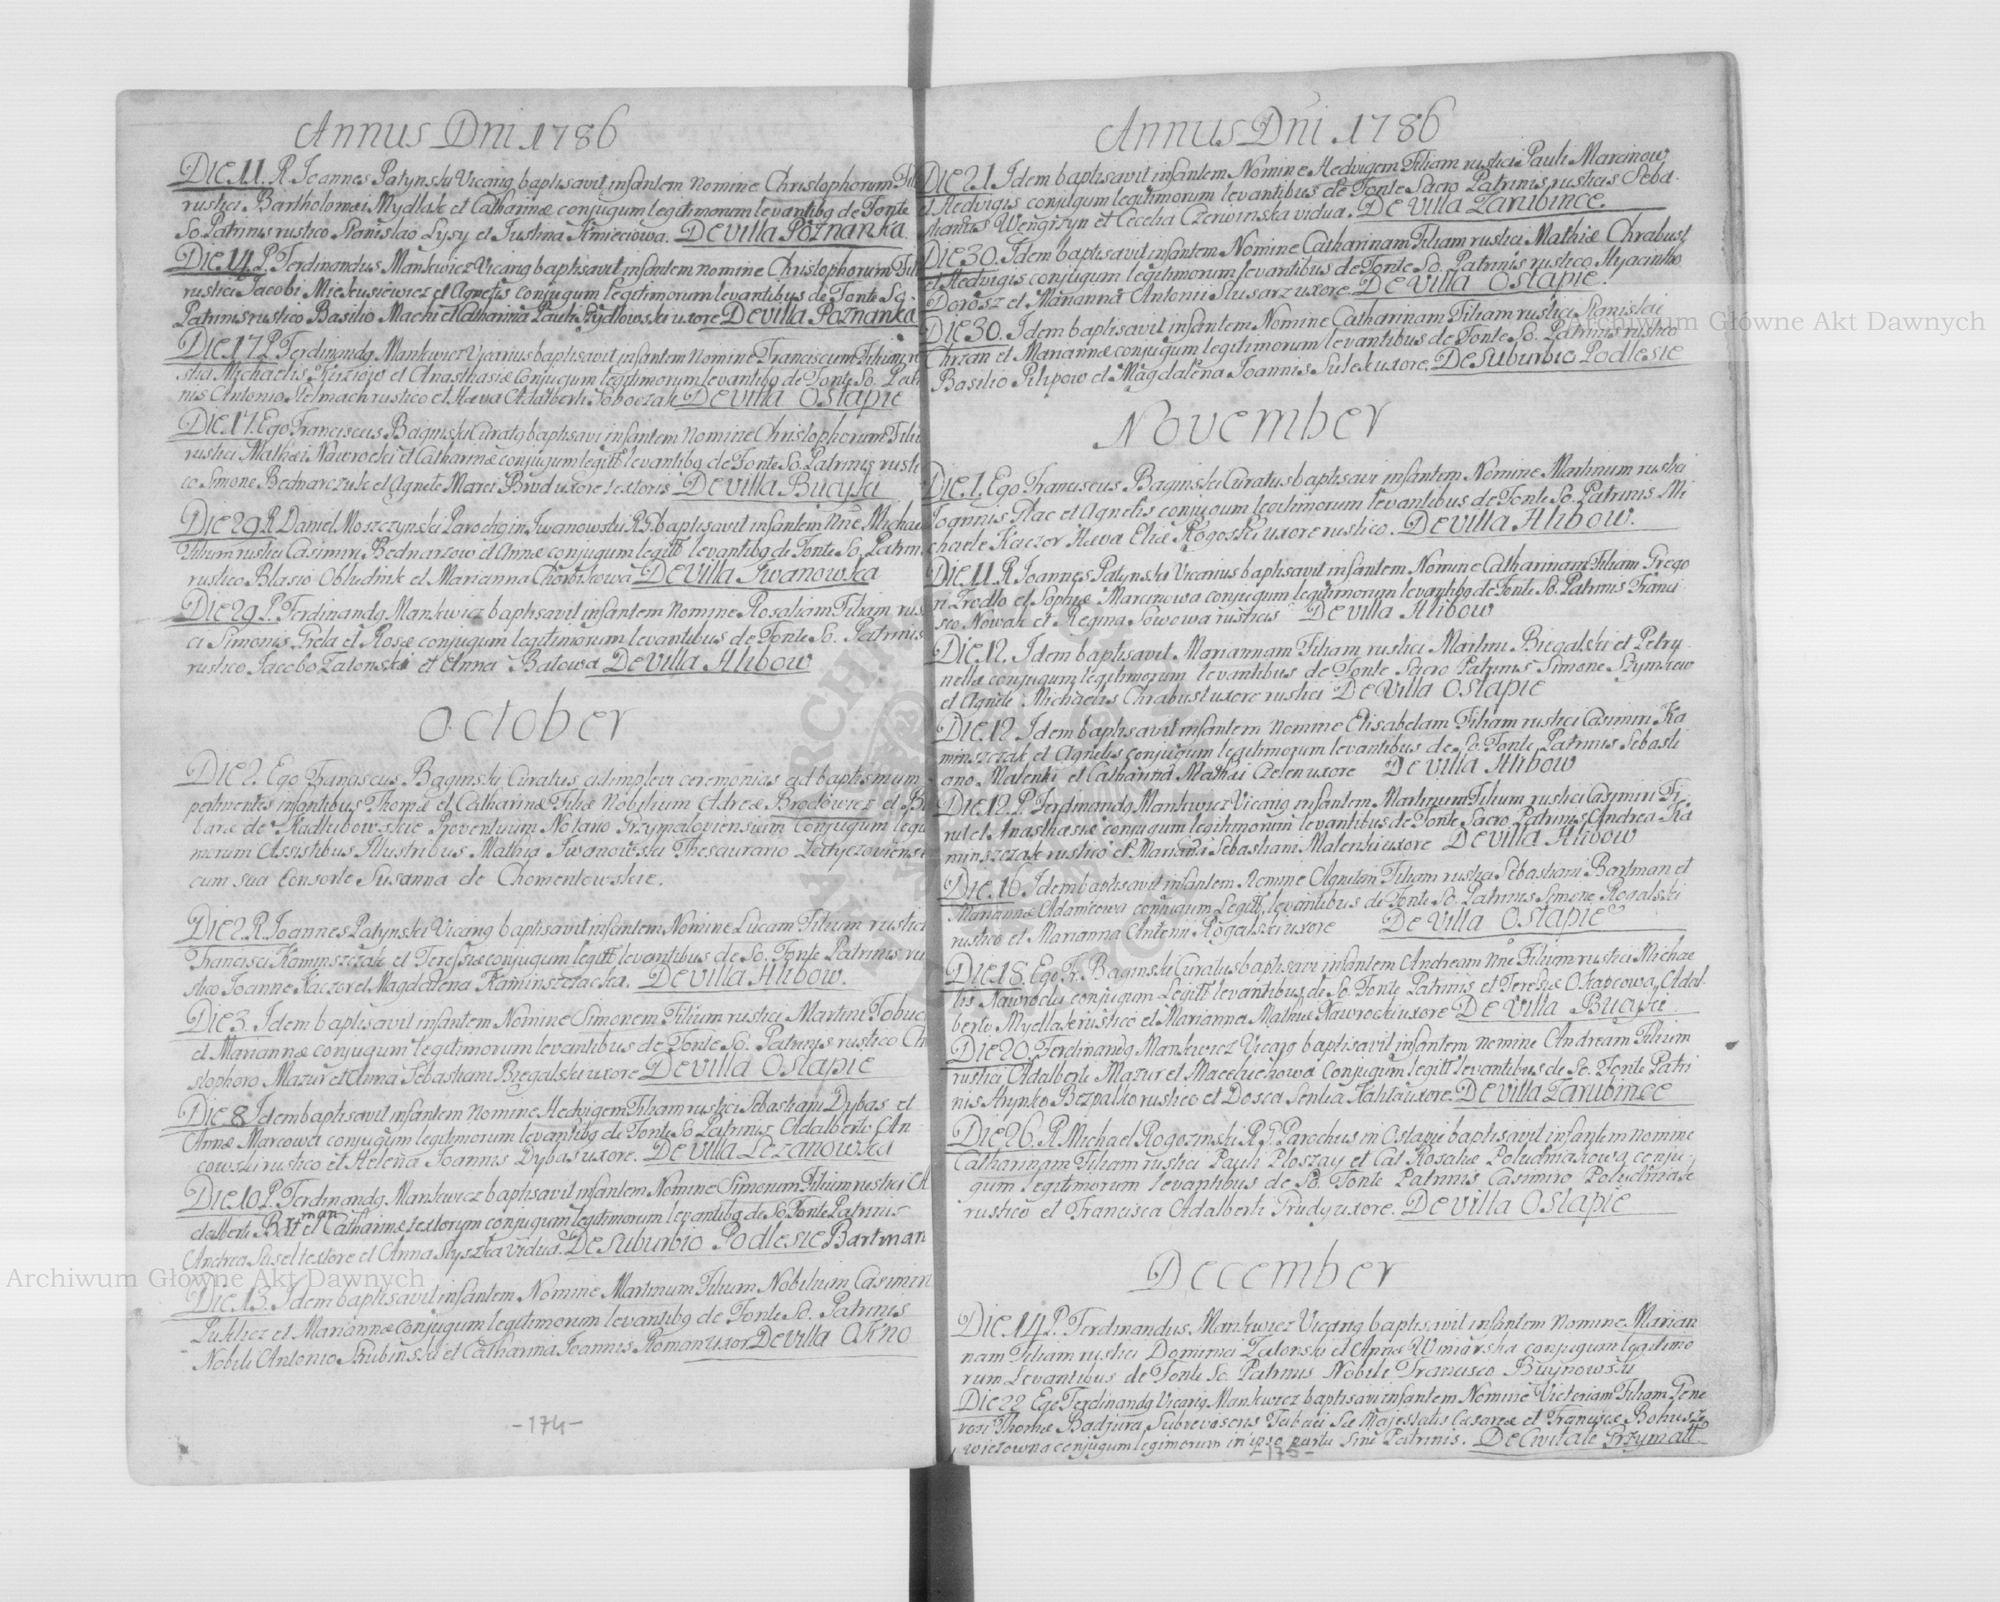 Annus Dni 1786
Die 11. R. Joannes Patynski Vicariq baptisavit infantem nomine Christophorum Fil
rustici Bartholomæi Mydlak et Catharinæ conjugum legitimorum levantibq de Fonte
So Patrinis rustico Stanislao Lysy et Justina Kmieciowa. De villa Poznanka
Die 14 P. Ferdinandus Mankwicz Vicariq baptisavit infantem nomine Christophorum Fil
rustici Jacobi Mickusiewicz et Agnetis conjugum legitimorum levantibus de Fonte So.
Patrinis rustico Basilio Machi et Catharina Pauli Szydlowski uxore De villa Poznanka
Die 17 P. Ferdinandq Mankwicz Vicarius baptisavit infantem nomine Franciscum Filium ru
stici Michaelis Kirziow et Anasthasiæ conjugum legitimorum levantibq de Fonte So. Patri
nis Antonio Stelmach rustico et Hæva Adalberti Soboczak De villa Ostapie
Die 17. Ego Franciscus Baginski Curatq baptisavi infantem nomine Christophorum Filiu
rustici Mathæi Nawrocki et Catharinæ conjugum legitt levantibq de Fonte So. Patrinis rusti
co Simone Bednarczuk et Agnete Marci Brud uxore textoris De villa Bucyki
Die 29 R. Daniel Moszczynski Parochq in Iwanowski R. G. baptisavit infantem Nne Michae
Filium rustici Casimiri Bednarzow et Annæ conjugum legitt levantibq de Fonte So. Patrin
rustico Blasio Obludnik et Marianna Chorbikowa De villa Iwanowska
Die 29 P. Ferdinandq Mankwicz baptisavit infantem nomine Rosaliam Filiam rus
ci Simonis Grela et Rosæ conjugum legitimorum levantibus de Fonte So. Patrinis
rustico Jacobo Zatonski et Anna Balowa De villa Hlibow
October
Die 2. Ego Franciscus Baginski Curatus adimplevi ceremonias ad baptismum
pertinentes infantibus Thomæ et Catharinæ Filiæ Nobilium Adreæ Brodowicz et Ba
baræ de Kadlubowskie Proventuum Notario Grzymaloviensium Conjugum legit
morum Assistibus Illustribus Mathia Iwanowski Thesaurario Latyczoviensi
cum sua Consorte Susanna de Chomentowskie.
Die 2. R. Joannes Patynski Vicariq baptisavit infantem Nomine Lucam Filium rustici
Francisci Kaminszczak et Teressiæ conjugum legitt levantibus de So. Fonte Patrinis ru
stico Joanne Kaczor et Magdalena Kaminszczacka. De villa Hlibow.
Die 3. Idem baptisavit infantem Nomine Simonem Filium rustici Martini Tobuc
et Mariannæ conjugum legitimorum levantibus de Fonte So. Patrinis rustico Ch
stophoro Mazur et Anna Sebastiani Biegalski uxore De villa Ostapie
Die 8 Idem baptisavit infantem nomine Hedvigem Filiam rustici Sebastiani Dybas et
Annæ Marcowa conjugum legitimorum levantibq de Fonte So Patrinis Adalberto An-
cowski rustico et Helena Joannis Dybas uxore. De villa Lezanowka
Die 10 P. Ferdinandq. Mankwicz baptisavit infantem Nomine Simonum Filium rustici A
dalberti Bartman et Catharinæ textorum conjugum legitimorum levantibq de So Fonte Patrinis
Andrea Susel textore et Anna Slyszka vidua. De Suburbio Podlesie Bartman
Die 13. Idem baptisavit infantem Nomine Martinum Filium Nobilium Casimiri
Lukhez et Mariannæ conjugum legitimorum levantibq de Fonte So. Patrinis
Nobili Antonio Skubinski et Catharina Joannis Roman uxor. De villa Okno
-174-
Annus Dni 1786
Die 21. Idem baptisavit infantem Nomine Hedvigem Filiam rustici Pauli Marcinow
et Hedvigis conjugum legitimorum levantibus de Fonte Sacro Patrinis rusticis Seba-
stianus Wengrzyn et Cecelia Czerwinska vidua. De villa Zarubince.
Die 30. Idem baptisavit infantem Nomine Catharinam Filiam rustici Mathiæ Chrabust
et Hedvigis conjugum legitimorum levantibus de Fonte So. Patrinis rustico Hyacintho
Dorosz et Marianna Antonii Slusarz uxore. De villa Ostapie.
Die 30. Idem baptisavit infantem Nomine Catharinam Filiam rustici Stanislai
Chrzan et Mariannæ conjugum legitimorum levantibus de Fonte So. Patrinis rustico
Basilio Pilipow et Magdalena Joannis Sulek uxore. De Suburbio Podlesie
November
Die 1. Ego Franciscus Baginski Curatus baptisavi infantem Nomine Martinum rustici
Joannis Glac et Agnetis conjugum legitimorum levantibus de Fonte So. Patrinis Mi
chaele Kaczor Hæva Eliæ Rogoski uxore rustico. De villa Hlibow.
Die 11. R. Joannes Patynski Vicarius baptisavit infantem Nomine Catharinam Filiam Grego
ri Zrodlo et Sophiæ Marcinowa conjugum legitimorum levantibq de Fonte So. Patrinis Franci
sco Nowak et Regina Sowowa rusticis De villa Hlibow
Die 12. Idem baptisavit Mariannam Filiam rustici Martini Biegalski et Petry-
nellæ conjugum legitimorum levantibus de Fonte Sacro Patrinis Simone Szymkow
et Agnete Michaelis Chrabust uxore rustici De villa Ostapie
Die 12. Idem baptisavit infantem Nomine Elisabetam Filiam rustici Casimiri Ka
minszczak et Agnetis conjugum legitimorum levantibus de So. Fonte Patrinis Sebasti
ano Malenki et Catharina Mathæi Czelen uxore De villa Hlibow
Die 12. P. Ferdinandq Mankwicz Vicariq infantem Martinum Filium rustici Casimiri Fi-
rut et Anasthasiæ conjugum legitimorum levantibus de Fonte Sacro Patrinis Andrea Ka
minszczak rustico et Marianna Sebastiani Malenki uxore De villa Hlibow
Die 16. Idem baptisavit infantem Nomine Agnetem Filiam rustici Sebastiani Bartman et
Mariannæ Adamcowa conjugum Legitt levantibus de Fonte So. Patrinis Simone Rogalski
rustico et Marianna Antonii Rogalski uxore De villa Ostapie
Die 18. Ego F. Baginski Curatus baptisavi infantem Andream Nne Filium rustici Michae
lis Nawrocki conjugum Legitt levantibus de So. Fonte Patrinis et Teresiæ Okapcowa Adal-
berto Myellak rustico et Marianna Mathiæ Nawrocki uxore De villa Bucyki
Die 20. Ferdinandq Mankwicz Vicariq baptisavit infantem nomine Andream Filium
rustici Adalberti Mazur et Maceluchowa conjugum legitt levantibus de So. Fonte Patri
nis Hrynko Bezpalko rustico et Dosca Senkæ Kalita uxore. De villa Zarubince
Die 26. R. Michael Rogozinski R. G. Parochus in Ostapie baptisavit infantem nomine
Catharinam Filiam rustici Pauli Ploszay et Cat Rosaliæ Poludniakowa conju-
gum legitimorum levantibus de So. Fonte Patrinis Casimiro Poludniak
rustico et Francisca Adalberti Grudy uxore. De villa Ostapie
December
Die 14 P. Ferdinandus Mankwicz Vicariq baptisavit infantem nomine Marian
nam Filiam rustici Dominici Zatonski et Agnes Winiarska conjugum legitimo
rum Levantibus de Fonte So Patrinis Nobile Francisco Buynowski
Die 22 Ego Ferdinandq Vicariq Mankwicz baptisavi infantem Nomine Victoriam Filiam Gene
rosi Thomæ Badjura Subrevisoris Tabaci Suæ Majestatis Cæsareæ et Franciscæ Bohusze
wiczowna conjugum legimorum in ipso partu sine Patrinis. De Civitate Grzymall
-175-
Archiwum Główne Akt Dawnych
Archiwum Główne Akt Dawnych